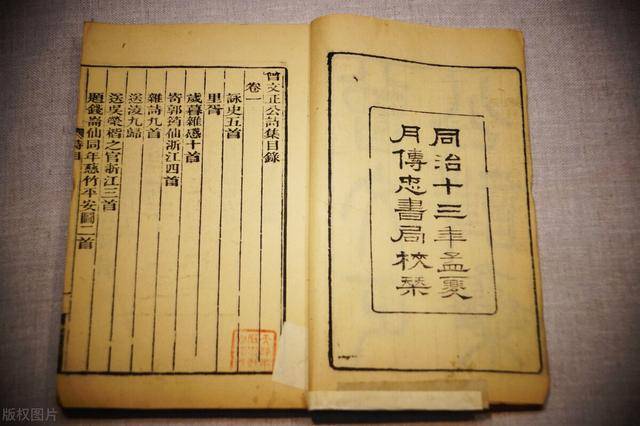 同治十三年孟夏
月傳忠書局校栞
曾文正公詩集目錄
卷一
詠史五首
里胥
歲暮雜感十首
寄郭筠仙浙江四首
雜詩九首
送凌九歸
送吳榮楷之官浙江三首
題錢崙仙同年慈竹平安圖二首
版权图片